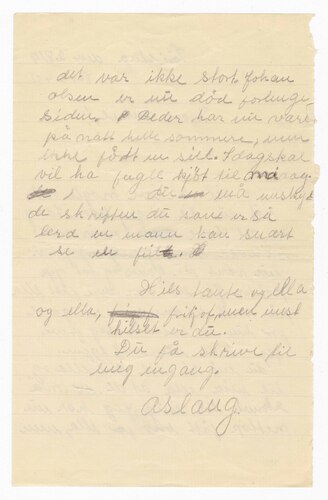 det var ikke stort. Johan
olsen er nu død forlenge
siden. Peder har nu være
på natt hele sommere, men
ikke fått en sill. I dag skal
vil ha fugle kjøt til mdag.
du må unsky
de skriften du sans er så
lerd en mann kan snart
se en
Hils tante og Ella
og ella, frik of, men mest
hilset er du.
Du få skrive til
meg engang.
aslaug.